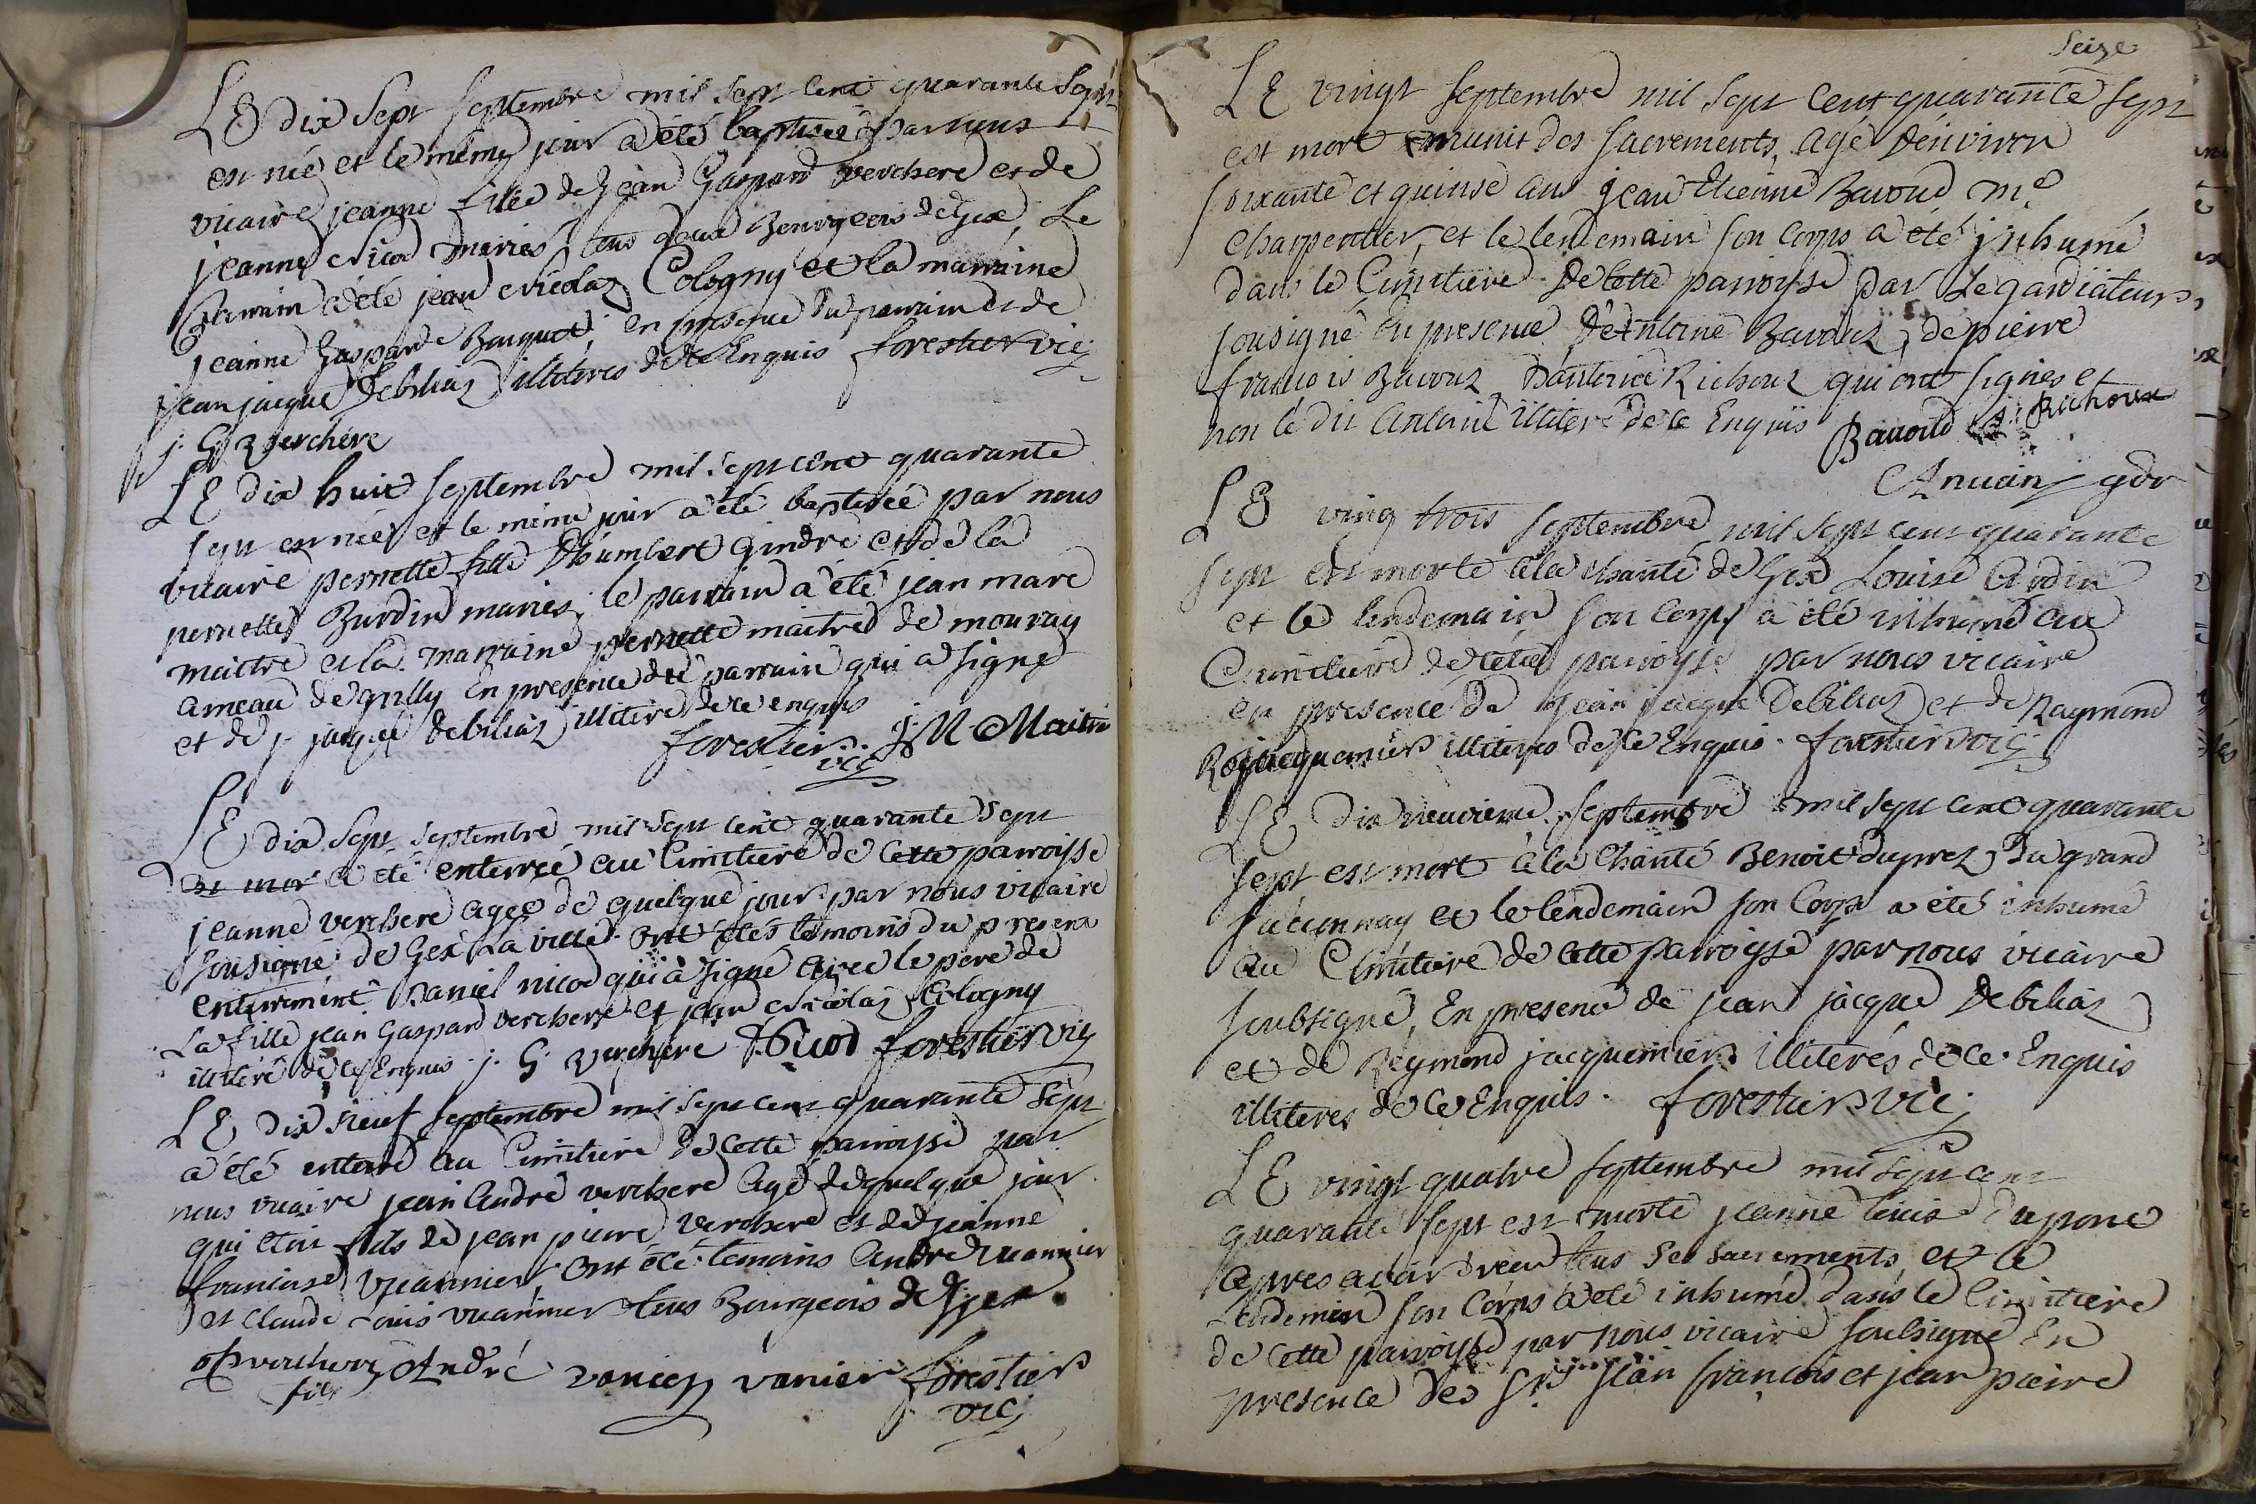 LE dix sept septembre mil sept cent quarante sept
est née et le même jour a été baptisée par nous
vicaire jeanne fille de jean Gaspard verchere et de
jeanne Nicod mariés tous deux Bourgeois de Gex, Le
parrain a été jean Nicolas Cologny et la marraine
jeanne Gasparde Bouquet, en presence du parrain et de
jean jacque Debilias illiteres de ce Enquis forestier vic
j. G. verchere
LE dix huit septembre mil sept cent quarante
sept est née et le même jour a été baptisée par nous
vicaire pernette fille d'humbert Gindre et de la
pernette Burdin mariés, le parrain a été jean marc
maitre et la marraine pernette maitre de mouray
ameau de gilly En presence du parrain qui a signé
et de j. jacque debilias illiteré de ce enquis
forestier vic J. M Maitre
LE dix sept septembre mil sept cent quarante sept
est mor a été enterrée au Cimitiere de Cette parroisse
jeanne verchere agee de quelque jour par nous vicaire
sousigné de Gex La ville ont étés temoins du present
enterrement Daniel nicod qui a signé avec le pere de
La fille jean Gaspard verchere et jean Nicolas Cologny
illiteré de ce Enquis j. G. verchere Nicod forestier vic
LE dix Neuf septembre mil sept cent quarante sept
a été enterré au Cimitiere de Cette parroisse par
nous vicaire jean André verchere Agé de quelque jour
qui etoit fils de jean pierre verchere et de jeanne
francoise vuannier ont été temoins André vuannier
et Claude Louis vuannier tous Bourgeois de Gex
verchere André vanier vanier forestier
fils vic
Seize
LE vingt septembre mil sept Cent quarante sept
est mort munit des sacrements, agé d'environ
soixante et quinse ans jean Etienne Bavoud me
Charpentier, et le lendemain son Corps a été inhumé
dans le Cimitiere de Cette parroysse par Le gardiateur
sousigné en presence d'Antoine Bavouz, de pierre
francois Bavouz d'antoine Richoux qui ont signés et
non le dit Antoine illiteré de ce Enquis Bavoud A: Richoux
Anuin gdr
LE ving trois septembre mil sept cent quarante
sept est morte a la charité de Gex Louise
et le lendemain son Corps a été inhumé au
Cimitiere de Cette parroysse par nous vicaire
en presence de jean jacque Debilias et de Raymond
jacquemier illiteres de ce Enquis forestier vic
LE dix neuvieme septembre mil sept cent quarante
sept est mort a la Charité Benoit duprez du grand
saconnay et le lendemain son Corps a été inhumé
au Cimitiere de Cette parroysse par nous vicaire
soubsigné, En presence de jean jacque Debilias
et de Reymond jacquemier illiterés de ce Enquis
illiteres de ce Enquis. forestier vic
LE vingt quatre septembre mil sept cent
quarante sept est morte jeanne Louise dupont
apres avoir recu tous ses sacrements et le
Lendemin son Corps a été inhumé dans le Cimitiere
de Cette parroysse par nous vicaire soubsigné En
presence des Srs jean francois et jean pierre